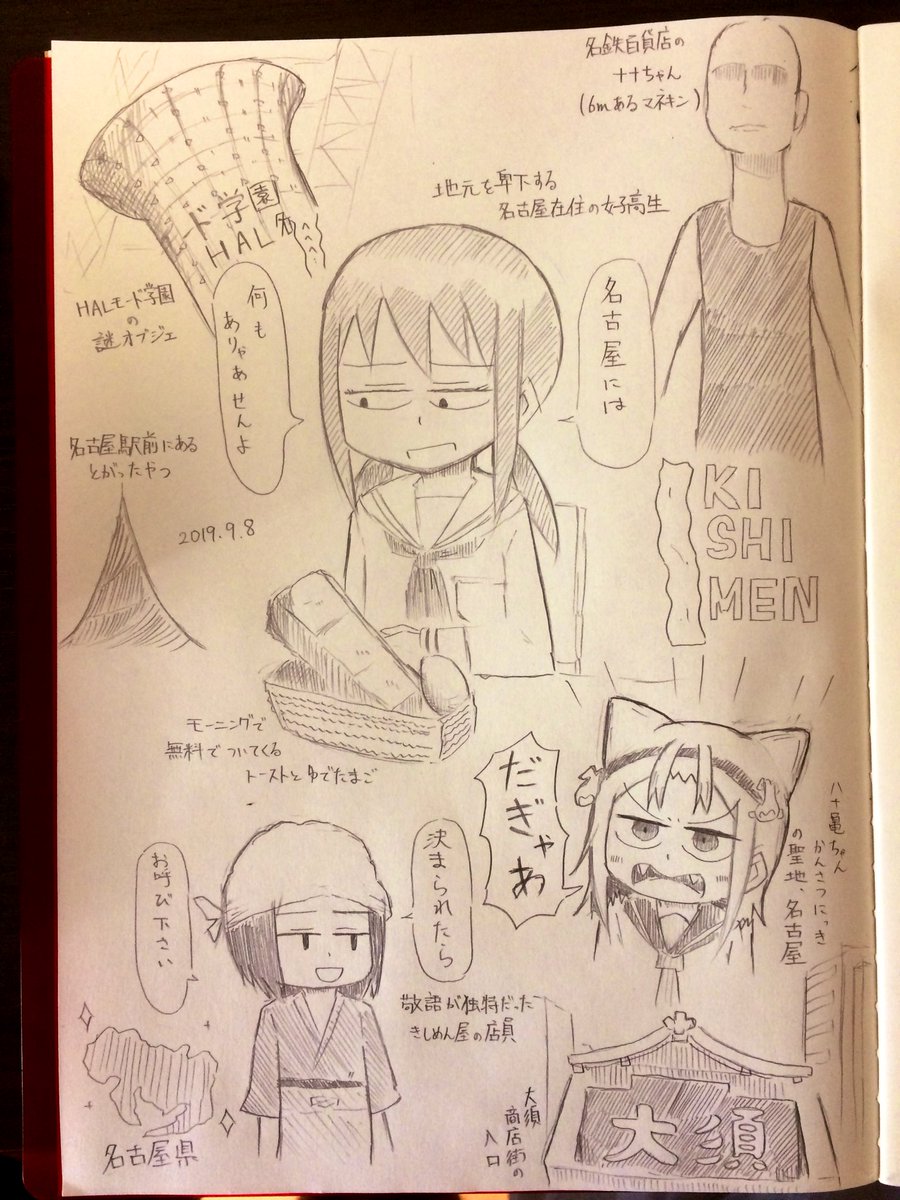 名鉄百貨店の
ナナちゃん
(6mあるマネキン)
地元を卑下する
名古屋在住の女子高生
ド学園
HAL名
HALモード学園
の
謎オブジェ
名古屋には
何も
ありゃあせんよ
名古屋駅前にある
とがったやつ
2019.9.8
KI
SHI
MEN
モーニングで
無料でついてくる
トーストとゆでたまご
だぎゃあ
八十亀ちゃん
かんさつにっき
の聖地、名古屋
決まられたら
お呼び下さい
敬語が独特だった
きしめん屋の店員
名古屋県
大須
商店街の
入口
大須